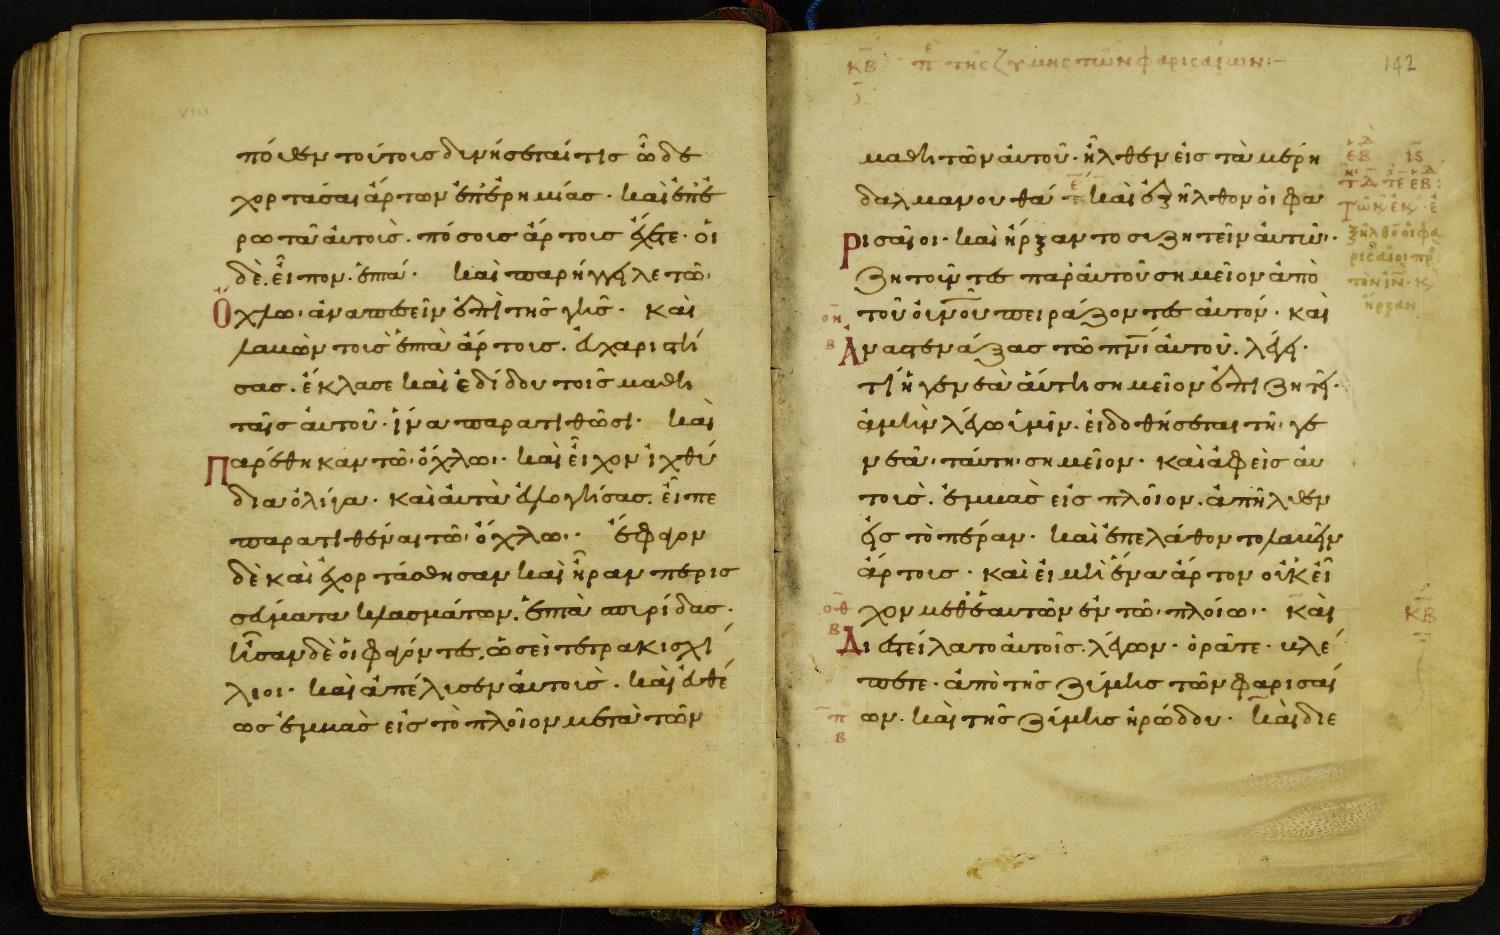 πόθεν τούτοις δυνήσεται τὶς ὧδε
χορτάσαι ἄρτων ἐπ' ἐρημίας. καὶ ἐπε
ρωτᾶ αὐτοὺς. πόσους ἄρτους ἔχετε. οἱ
δὲ. εἶπον. ἑπτά. καὶ παρήγγειλε τῶ
ὄχλω. ἀναπεσεῖν ἐπὶ τῆς γῆς. καὶ
λαβὼν τοὺς ἑπτὰ ἄρτους. εὐχαριστή
σας. ἔκλασε καὶ ἐδίδου τοῖς μαθη
ταῖς αὐτοῦ. ἵνα παρατιθῶσι. καὶ
παρέθηκαν τῶ ὄχλω. καὶ εἶχον ἰχθύ
δια ὀλίγα. καὶ αὐτὰ εὐλογήσας. εἶπε
παρατιθέναι τῶ ὄχλω. ἔφαγον
δὲ καὶ ἐχορτάσθησαν καὶ ἦραν περισ
σεύματα κλασμάτων. ἑπτὰ σπυρίδας.
ἦσαν δὲ οἱ φαγόντες, ὡσεὶ τετρακισχί
λιοι. καὶ ἀπέλυσεν αὐτοὺς. καὶ εὐθέ
ως ἐμβὰς εἰς τὸ πλοῖον μετὰ τῶν
κβ π τῆς ζύμης τῶν φαρισαίων:
142
μαθητῶν αὐτοῦ. ἦλθεν εἰς τὰ μέρη
δαλμανουθά τε καὶ ἐξῆλθον οἱ φα
ρισαῖοι. καὶ ἤρξαντο συζητεῖν αὐτῶ.
ζητοῦντες παρ' αὐτοῦ σημεῖον ἀπὸ
τοῦ οὐνοῦ πειράζοντες αὐτόν. καὶ
ἀναστενάξας τῶ πνι αὐτοῦ. λέγει.
τί ἡ γενεὰ αὕτη σημεῖον ἐπιζητεῖ.
ἀμὴν λέγω ὑμῖν. εἰ δοθήσεται τῆ γε
νεᾶ ταύτη σημεῖον. καὶ ἀφεὶς αὐ
τοὺς. ἐμβὰς εἰς πλοῖον. ἀπῆλθεν
εἰς τὸ πέραν. καὶ ἐπελάθοντο λαβεῖν
ἄρτους. καὶ εἰ μὴ ἕνα ἄρτον οὐκ εἶ
χον μεθ' ἑαυτῶν ἐν τῶ πλοίω. καὶ
διεστείλατο αὐτοῖς. λέγων. ὁρᾶτε. βλέ
πετε. ἀπὸ τῆς ζύμης τῶν φαρισαί
ων. καὶ τῆς ζύμης ἡρώδου. καὶ διε
ἐξῆλθον οἱ φα
ρισαῖοι πρ
τὸν ιν. κ
ἤρξαν
οη
β
οθ
β
π
β
κβ